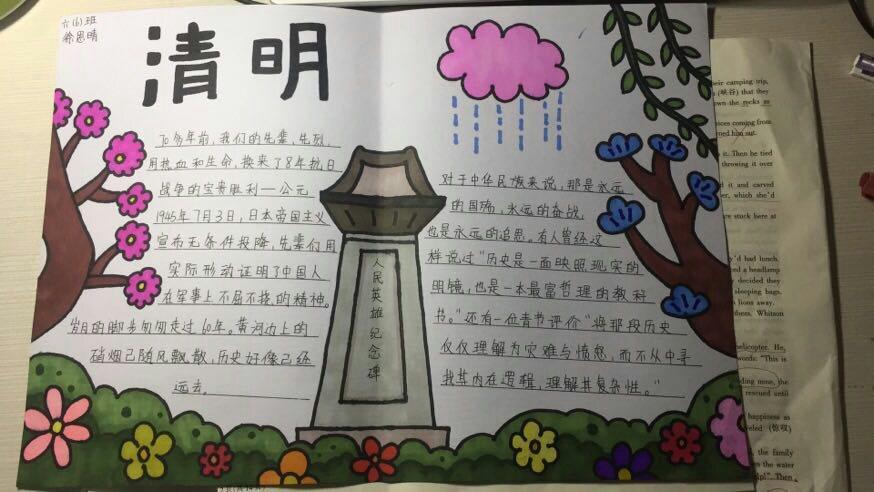 六(6)班
徐思晴
清明
70多年前，我们的先辈，先烈，
用热血和生命，换来了8年抗日
战争的宝贵胜利—公元
1945年7月3日，日本帝国主义
宣布无条件投降，先辈们用
实际形动证明了中国人
在军事上不屈不挠的精神。
岁月的脚步匆匆走过60年。黄河边上的
硝烟已随风飘散，历史好像已经
远去。
人民英雄纪念碑
对于中华民族来说，那是永远
的国殇，永远的奋战，
也是永远的追思。有人曾经这
样说过“历史是一面映照现实的
眼镜，也是一本最富哲理的教科
书。”还有一位青节评价“将那段历史
仅仅理解为灾难与愤怒，而不从中寻
找其内在逻辑，理解其复杂性。”
their camping trip,
(峡谷) that they
down the rocks as
voices coming from
it. Then he tied
throwing it over
d it and carved
which she'd
are stuck here at
y'd had lunch.
a headlamp
they decided
sleeping bags,
lions away.
them. Whitson
helicopter. He,
words: "This is
none, the
rescued until
happiness as
(惊叹)
, the family
on the water
Then